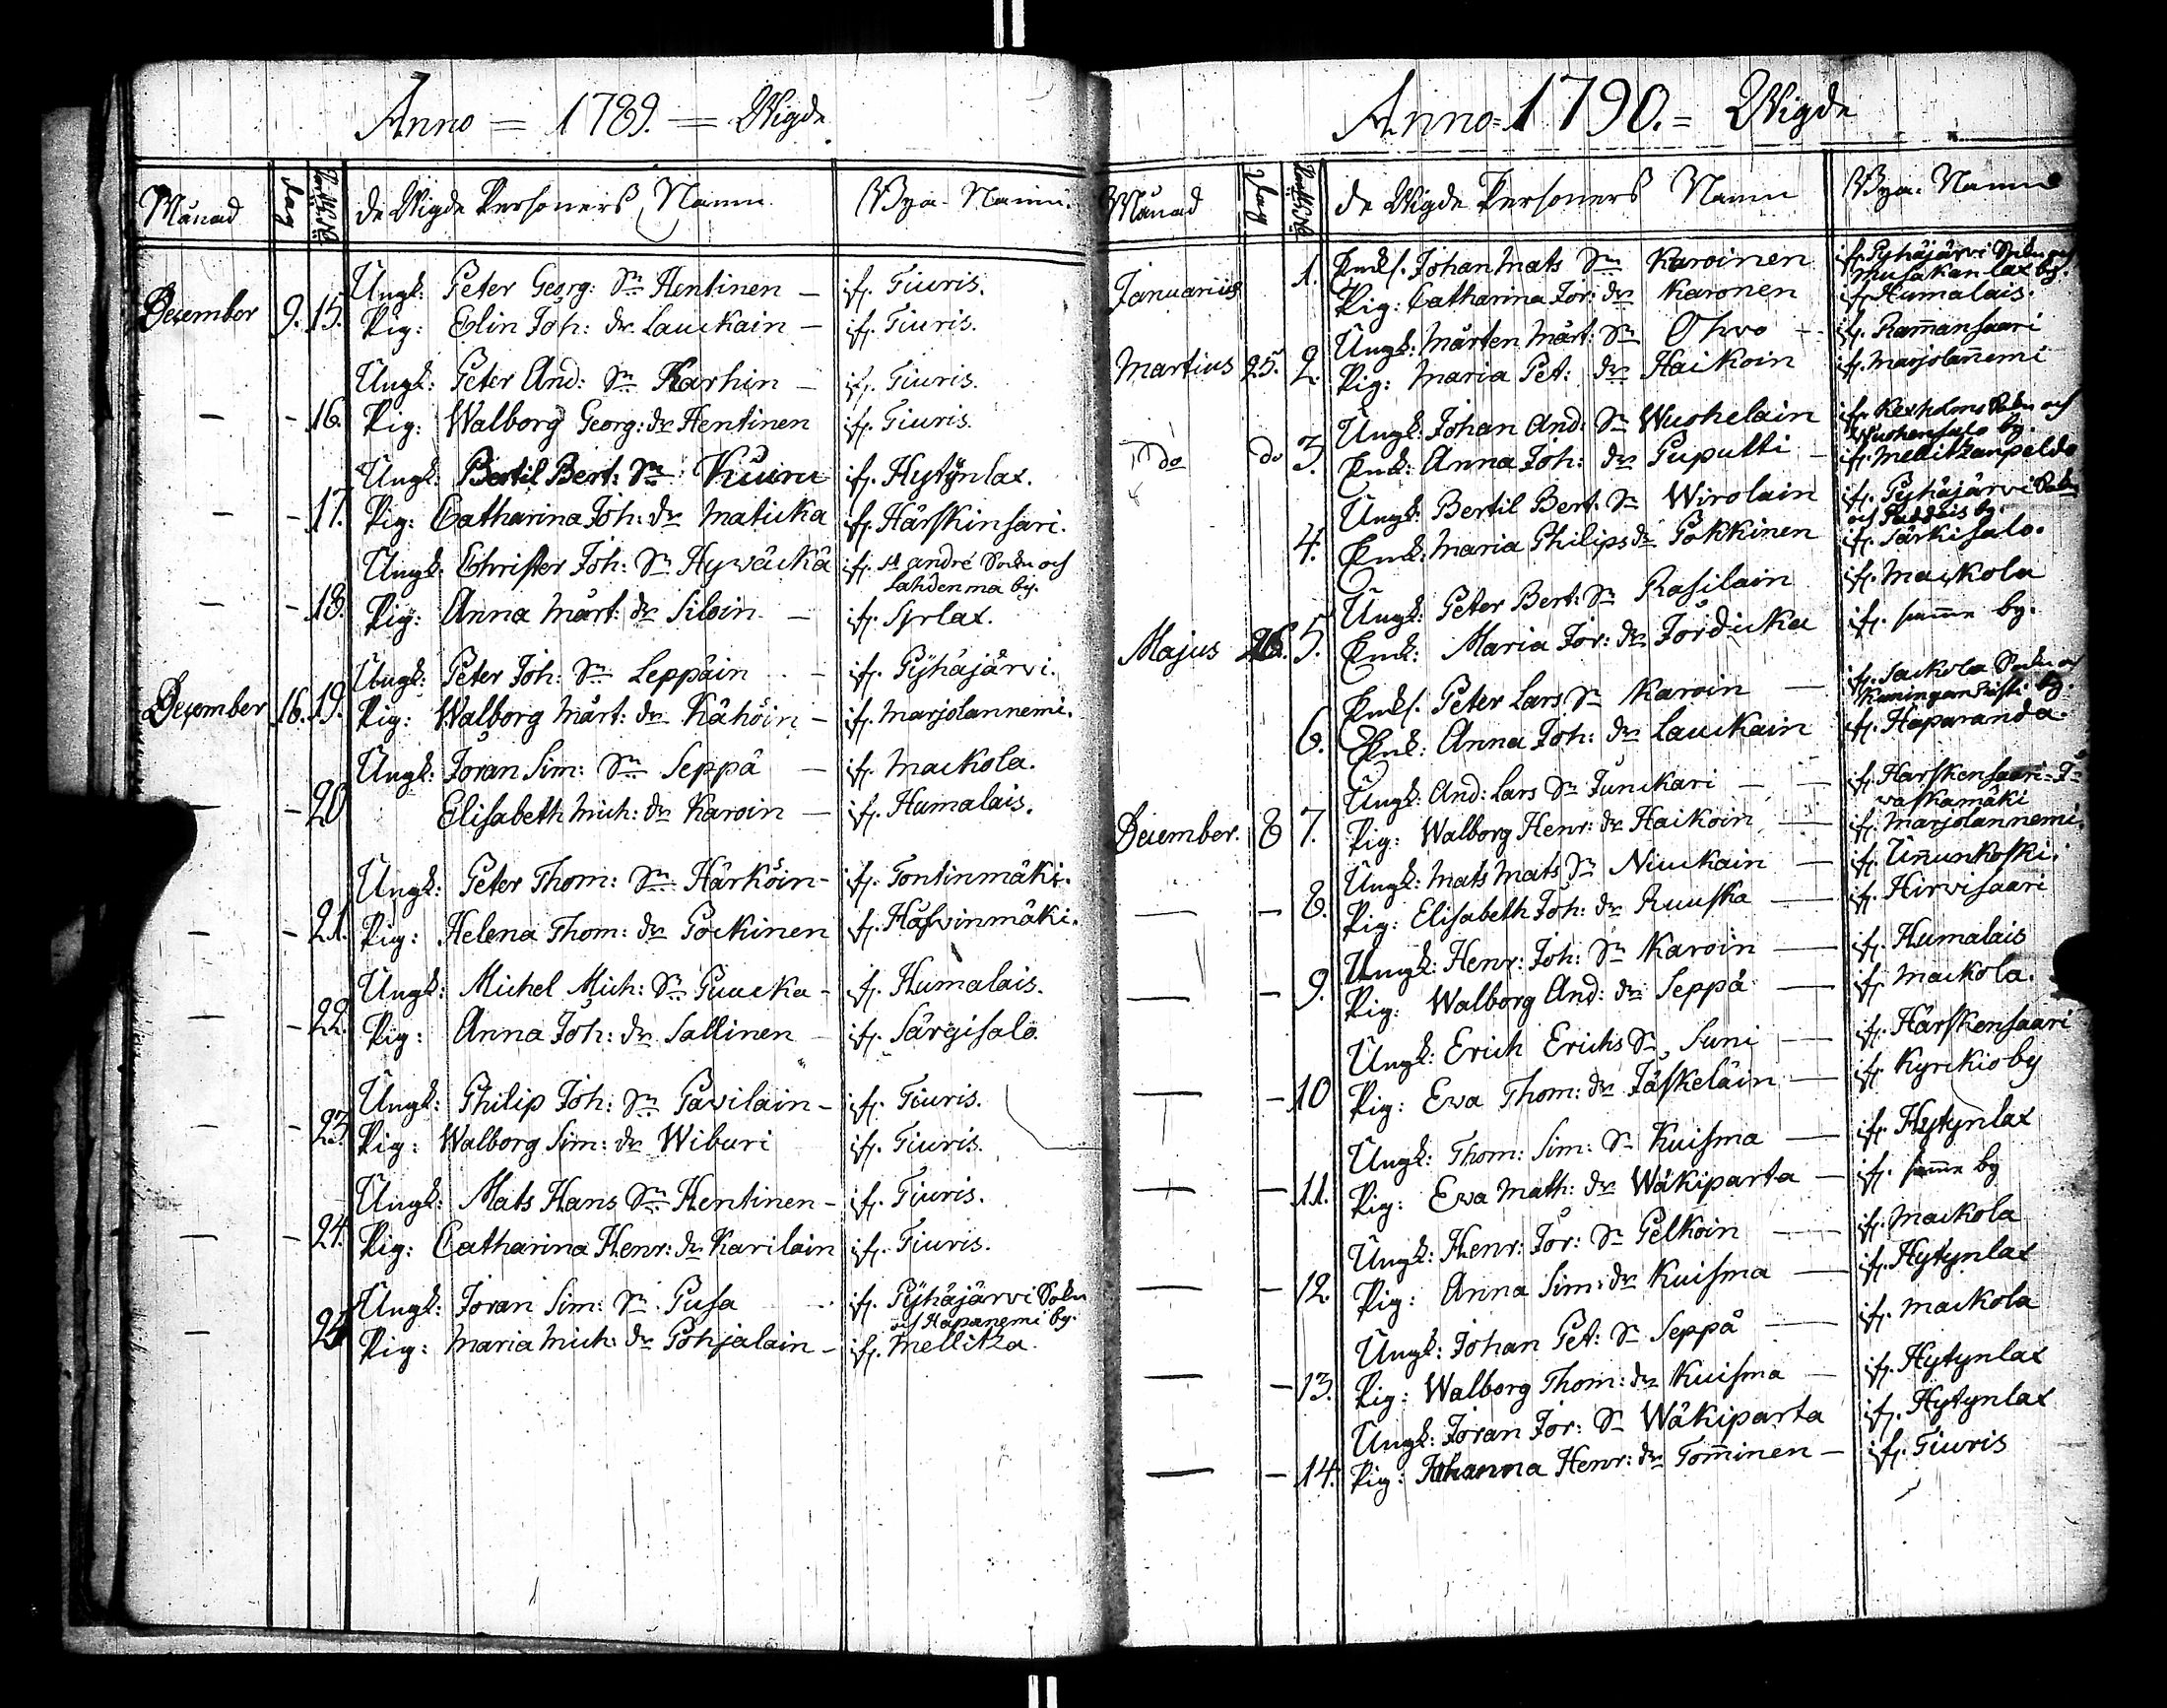 Anno = 1789. = Wigde
Månad Dag Par N:o de Wigde Personers Namn Bya-Namn.
Ungk: Peter Georg: Sn Hentinen – ifr. Tiuris.
December 9. 15. Pig: Elin Joh: dr. Lauckain – ifr. Tiuris.
Ungk: Peter And: Sn Karhin – ifr. Tiuris.
– – 16. Pig: Walborg Georg: dr Hentinen ifr. Tiuris.
Ungk: Bertil Bert: Sn Kuuru ifr. Hytynlax.
– – 17. Pig: Catharina Joh: dr Maticka ifr. Härskinsari.
Ungk: Christer Joh: Sn Hywäckä ifr. St andré Sokn och
Lahdenma by.
– – 18. Pig: Anna Mårt: dr Siloin – ifr. Syrlax.
Ungk: Peter Joh: Sn Leppäin – ifr. Pyhäjärvi.
December 16. 19. Pig: Walborg Mårt: dr Kähöin – ifr. Marjolannemi.
Ungk: Jöran Sim: Sn Seppä – ifr. Mackola.
– – 20 Elisabeth Mich: dr Karoin – ifr. Humalais.
Ungk: Peter Thom: Sn Härköin – ifr. Tontinmäki.
– – 21. Pig: Helena Thom: dr Pockinen ifr. Häswinmäki.
Ungk: Michel Mich: Sn Puucka – ifr. Humalais.
– – 22. Pig: Anna Joh: dr Sallinen – ifr. Särgisalo.
Ungk: Philip Joh: Sn Pavilain – ifr. Tiuris.
– – 23. Pig: Walborg Sim: dr Wiburi ifr. Tiuris.
Ungk: Mats Hans Sn Hentinen – ifr. Tiuris.
– – 24. Pig: Catharina Henr: dr Karilain ifr. Tiuris.
Ungk: Jöran Sim: Sn Pusa ifr. Pyhäjärvi Sokn
och Hapanemi by.
– 25 Pig: Maria Mich: dr Pohjalain – ifr. Mellitza.
Anno = 1790. = Wigde
Månad Dag Par N:o de Wigde Personers Namn Bya-Namn
Januarius 1. Enkl. Johan Mats Sn Karoinen ifr. Pyhäjärvi Sokn och
Musakanlax by.
Pig: Catharina Jör: dr Karonen ifr. Humalais.
Ungk: Mårten Mårt: Sn Ohvo – ifr. Ramansaari
Martius 25. 2. Pig: Maria Pet: dr Haikoin ifr. Marjolannemi
Ungk: Johan And: Sn Wuohelain ifr. Kexholms Sokn och
Wuohensalo by.
do do 3. Enk: Anna Joh: dr Puputti – ifr. Mellitzanpeldo
Ungk: Bertil Bert: Sn Wirolain ifr. Pyhäjärvi Sokn
4. Enk: Maria Philips dr Pokkinen ifr. Särkisalo.
Ungk: Peter Bert: Sn Rasilain ifr. Mackola
Majus 26. 5. Enk: Maria Jör: dr Jördicka ifr. samme by.
Enkl. Peter Lars Sn Karoin – ifr. Sackola Sokn och
6. Enk: Anna Joh: dr Lauckain ifr. Haparanda.
Ungk: And: Lars Sn Junckari – – ifr. Harskensaari =
December. 8 7. Pig: Walborg Henr: dr Haikoin – ifr. Marjolannemi.
Ungk: Mats Mats Sn Niuckain – ifr. Unnunkoski.
– – 8. Pig: Elisabeth Joh: dr Ruuska – ifr. Hirvisaari
Ungk: Henr: Joh: Sn Karoin – ifr. Humalais
– – 9. Pig: Walborg And: dr Seppä – ifr. Mackola.
Ungk: Erich Erichs Sn Suni – ifr. Härskensaari
– – 10 Pig: Ewa Thom: dr Jäskeläin – ifr. Kyrckioby
Ungk: Thom: Sim: Sn Kuisma – ifr. Hytynlax
– – 11. Pig: Ewa Math: dr Wäkiparta – ifr. samme by
Ungk: Henr: Jör: Sn Pelkoin – ifr. Mackola
– – 12. Pig: Anna Sim: dr Kuisma – ifr. Hytynlax
Ungk: Johan Pet: Sn Seppä – ifr. Mackola
– – 13. Pig: Walborg Thom: dr Kuisma – ifr. Hytynlax
Ungk: Jöran Jör: Sn Wäkiparta ifr. Hytynlax
– – 14. Pig: Johanna Henr: dr Tominen – ifr. Tiuris